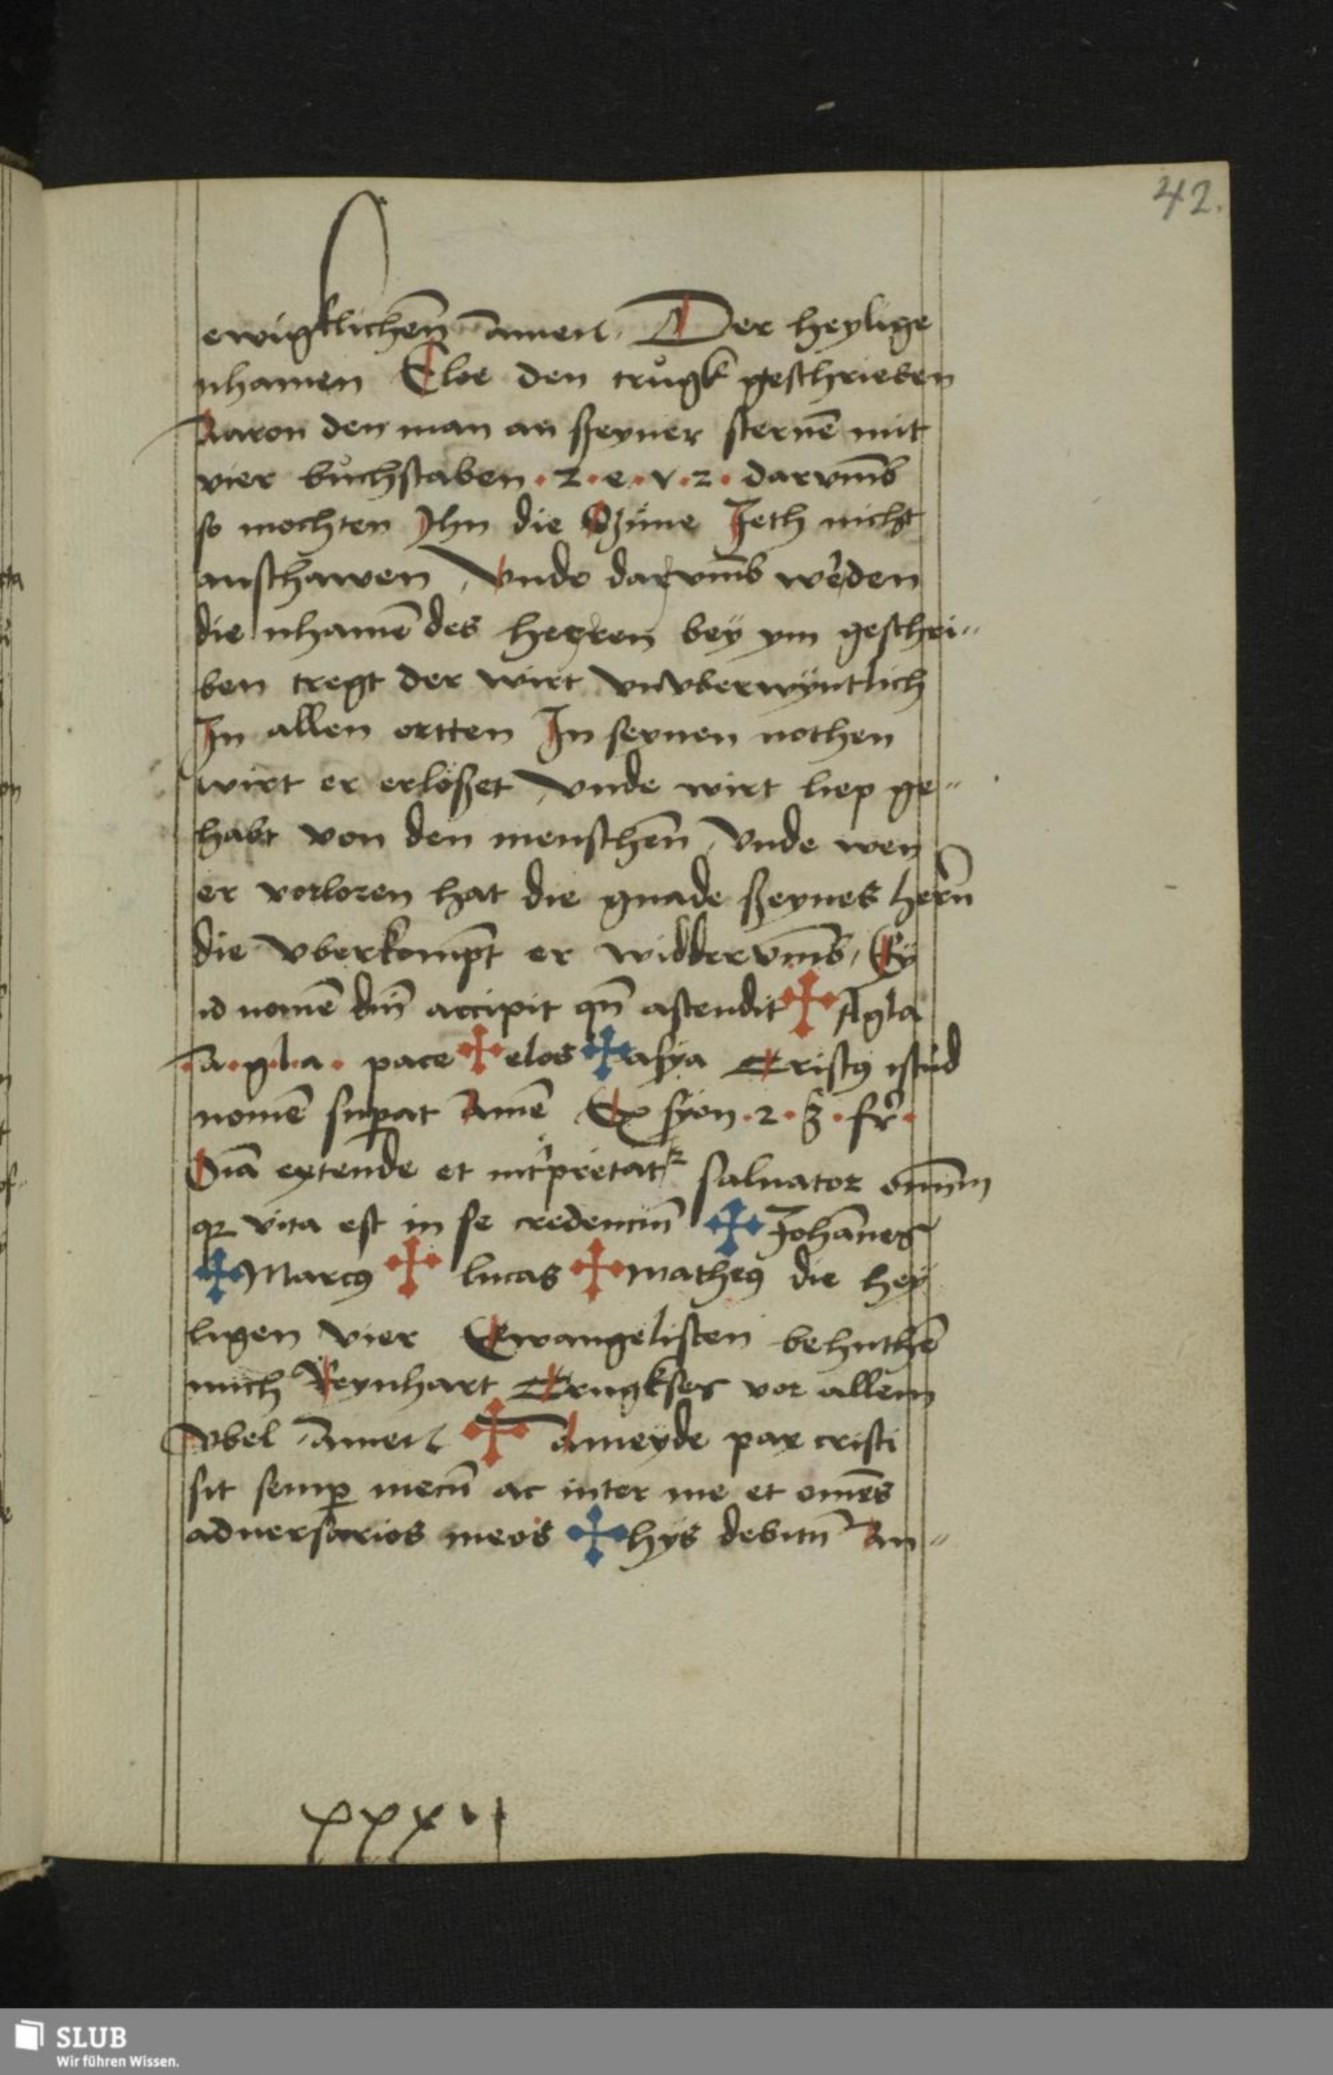 42.
ewigklichen̄ amen. Der heylige
nhamen Eloe den trůgk geschrieben
Aaron den man an ßeyner sternē mit
vier bůchstaben · z · e · v · z · darvm̄b
so mochten Ihn die Jeth nicht
anschawen, Vnde darvm̄b werden
die nhamē des herren bey ym geschri„
ben tregt der wirt vnvberwyntlich
In allen ortten In seynen nothen
wirt er erlößet, Vnde wirt liep ge„
habt von den menschen̄, Vnde wen
er vorloren hat die gnade ßeynes hern̄
die vberkompt er widdervm̄b, Ey
id nomē dn̄i accipit qn̄ ascendit ✠ Agla
· a · g · l · a · pace ✠ elos ✠ asya Cristꝯ istud
nomē suꝑat Amē Ex syon · 2 · 3 · fr̄ ·
extende et saluator om̄m
vita est in se credenciu̅ ✠ Johānes
✠ Marcꝯ ✠ lucas ✠ matheꝯ die hey
ligen vier Ewangelisten behuthē
mich Reynhart Trugkses vor allem
vbel, amen ✠ Ameyde pax cristi
sit semꝑ mecū ac inter me et om̄es
aduersarios meos ✠ hys debitū An„
xxxvi
SLUB
Wir führen Wissen.